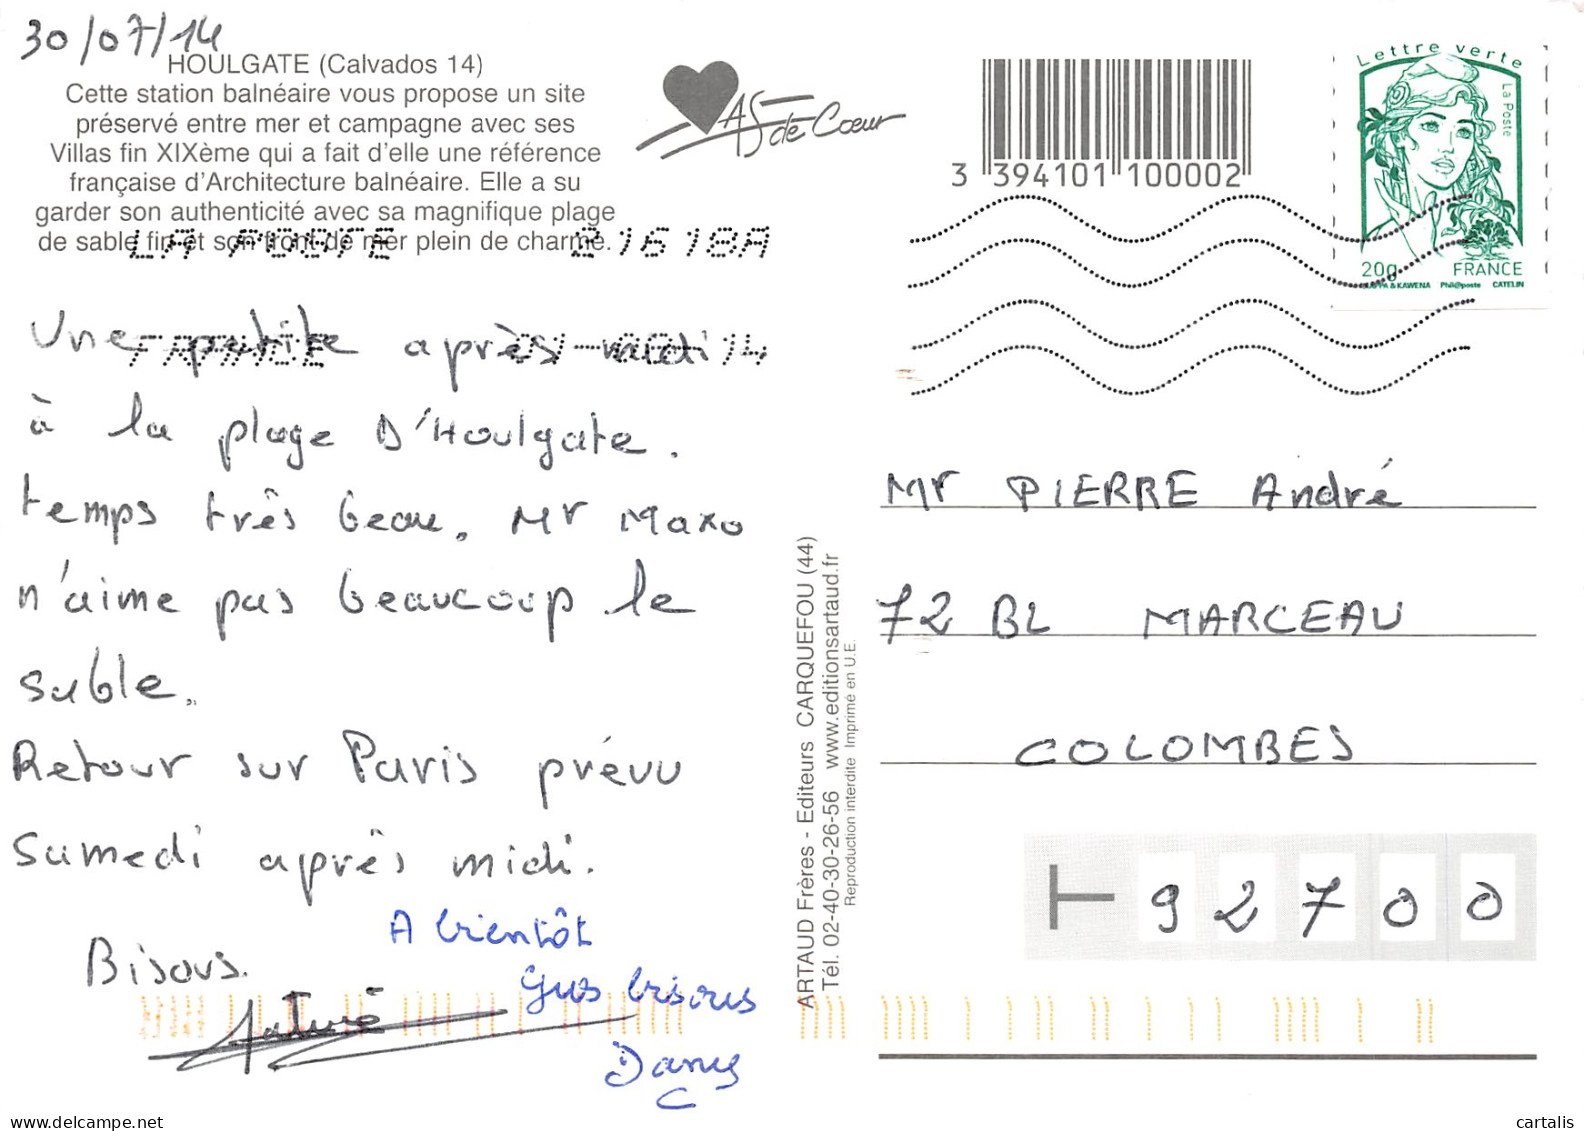 30/07/14
HOULGATE (Calvados 14)
Cette station balnéaire vous propose un site
préservé entre mer et campagne avec ses
Villas fin XIXème qui a fait d'elle une référence
française d'Architecture balnéaire. Elle a su
garder son authenticité avec sa magnifique plage
de sable fin et son front de mer plein de charme.
LA POSTE 21618A
FRANCE 14
Une petite après midi
à la plage D'Houlgate.
temps très beau. Mr Maxo
n'aime pas beaucoup le
sable.
Retour sur Paris prévu
Samedi après midi.
Bisous.
A bientôt
Gros bisous
Dany
AS de Cœur
3 394101 100002
Lettre verte
La Poste
20g FRANCE
CIAPPA & KAWENA Phil@poste CATELIN
ARTAUD Frères - Editeurs CARQUEFOU (44)
Tél. 02-40-30-26-56 www.editionsartaud.fr
Reproduction interdite Imprimé en U.E.
Mr PIERRE André
72 BL MARCEAU
COLOMBES
92700
delcampe.net
cartalis